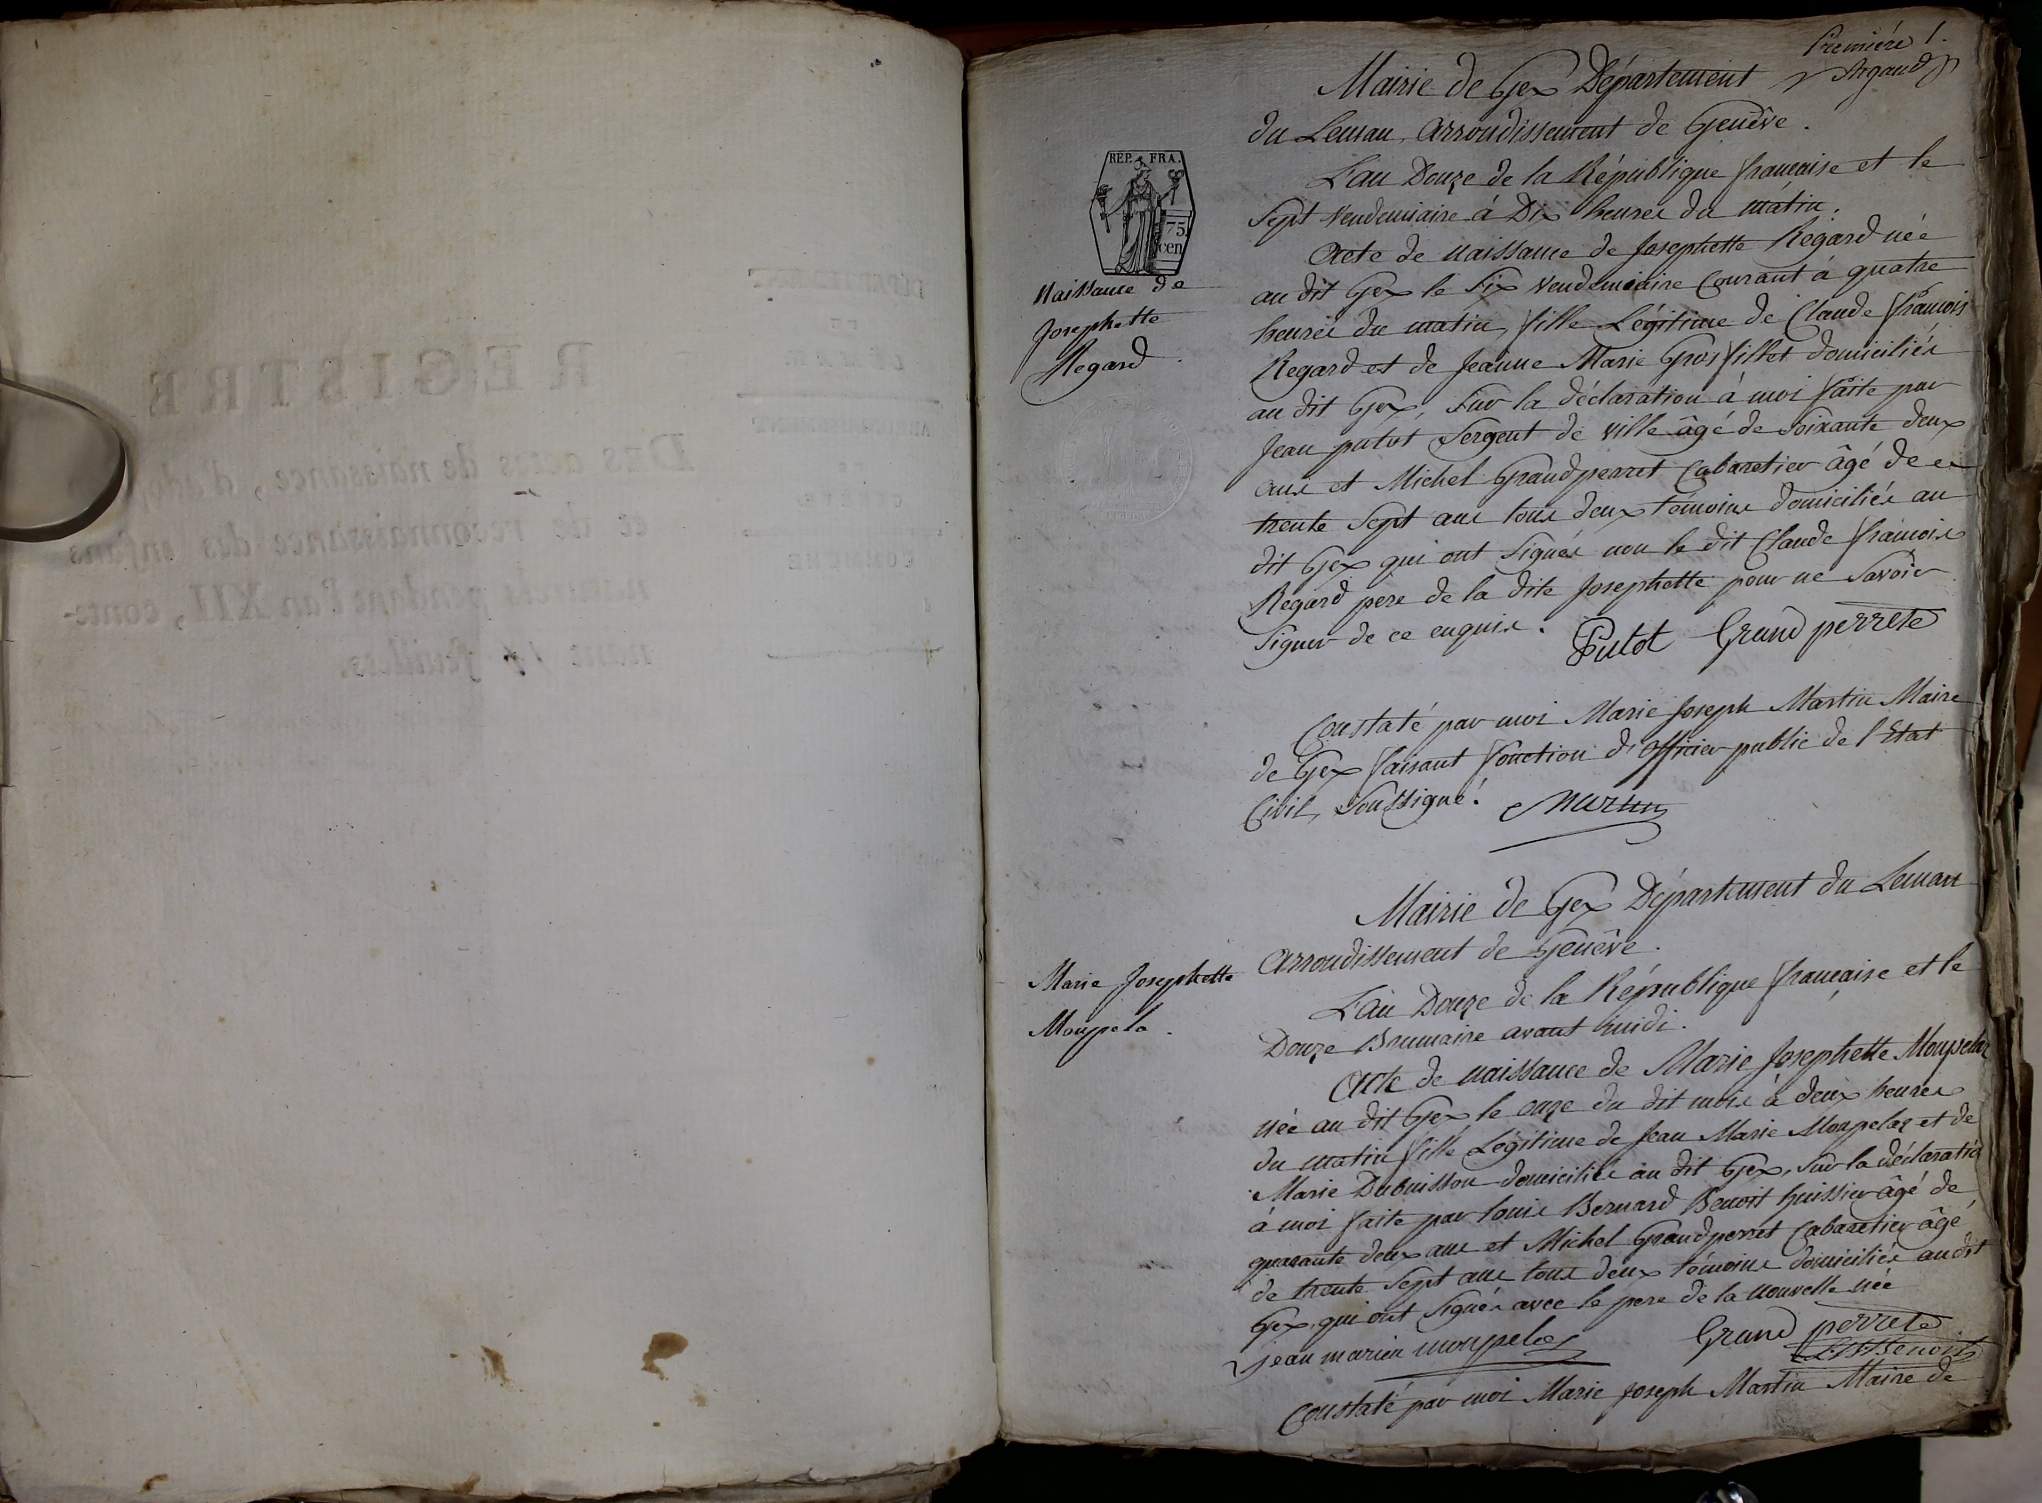 Premiére 1.
Argaud
Mairie de Gex Département
du Leman, Arrondissement de Genêve.
REP. FRA.
75
cen
L'an Douze de la République française et le
Sept Vendemiaire à Dix heures du matin.
Naissance de
Josephette
Regard.
Acte de naissance de Josephette Regard née
au dit Gex le Six Vendemiaire Courant à quatre
heures du matin, fille Légitime de Claude françois
Regard et de Jeanne Marie Grosfillet domiciliés
au dit Gex, Sur la déclaration à moi faite par
Jean putot Sergent de Ville âgé de Soixante deux
ans et Michel Grandperret Cabaretier âgé de
trente Sept ans tous deux témoins domiciliés au
dit Gex qui ont Signés non le dit Claude françois
Regard pere de la dite Josephette pour ne Savoir
Signer de ce enquis.
Putot Grand perrete
Constaté par moi Marie Joseph Martin Maire
de Gex faisant fonction d'officier public de l'Etat
Civil, Soussigné.
Martin
Mairie de Gex Département du Leman
Arrondissement de Genêve.
Marie Josephette
Monpela.
L'an Douze de la République française et le
Douze Brumaire avant midi.
Acte de naissance de Marie Josephette Monpelaz
née au dit Gex le onze du dit mois à deux heures
du matin fille Légitime de Jean Marie Monpelaz et de
Marie Dubuisson domiciliés au dit Gex, Sur la déclaratio
à moi faite par Louis Bernard Benoit huissier âgé de
quarante deux ans et Michel Grandperret Cabaretier âgé
de trente Sept ans tous deux témoins domiciliés au dit
Gex, qui ont Signés avec le pere de la nouvelle née
jean marien monpelas Grand perrete
LB Benoit
Constaté par moi Marie Joseph Martin Maire de
REGISTRE
Des actes de naissance, d'adop
et de reconnaissance des enfans
naturels pendant l'an XII, conte-
nant 14 feuillets.
DÉPARTEMENT
DU
LÉMAN.
ARRONDISSEMENT
COMMUNE